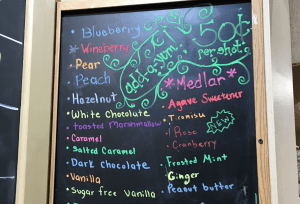 • Blueberry
* Wineberry
• Pear
• Peach
• Hazelnut
• White Chocolate
• toasted Marshmallow
• Caramel
• Salted Caramel
• Dark Chocolate
• Vanilla
• Sugar free Vanilla
add-a-yum:
50¢
per shot
*Medlar*
Agave Sweetener
• Tiramisu
• Rose
• Cranberry
• Frosted Mint
• Ginger
• Peanut butter